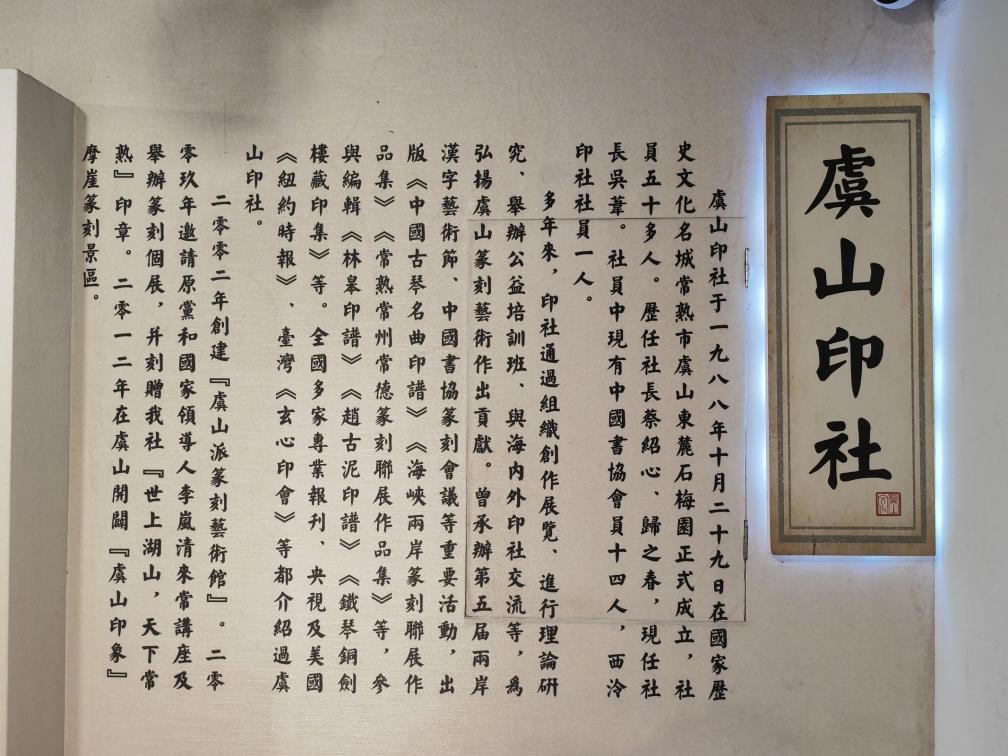 虞山印社
虞山印社于一九八八年十月二十九日在國家歷
史文化名城常熟市虞山東麓石梅園正式成立，社
員五十多人。歷任社長蔡紹心、歸之春，現任社
長吳葦。社員中現有中國書協會員十四人，西泠
印社社員一人。
多年來，印社通過組織創作展覽、進行理論研
究、舉辦公益培訓班、與海内外印社交流等，爲
弘揚虞山篆刻藝術作出貢獻。曾承辦第五届兩岸
漢字藝術節、中國書協篆刻會議等重要活動，出
版《中國古琴名曲印譜》《海峽兩岸篆刻聯展作
品集》《常熟常州常德篆刻聯展作品集》等，參
與編輯《林皋印譜》《趙古泥印譜》《鐵琴銅劍
樓藏印集》等。全國多家專業報刊、央視及美國
《紐約時報》、臺灣《玄心印會》等都介紹過虞
山印社。
二零零二年創建『虞山派篆刻藝術館』。二零
零玖年邀請原黨和國家領導人李嵐清來常講座及
舉辦篆刻個展，并刻贈我社『世上湖山，天下常
熟』印章。二零一二年在虞山開闢『虞山印象』
摩崖篆刻景區。